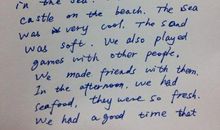 in the sea.
castle on the beach. The sea
was very cool. The sand
was soft. We also played
games with other people.
We made friends with them.
In the afternoon, we had
seafood, they were so fresh.
We had a good time that